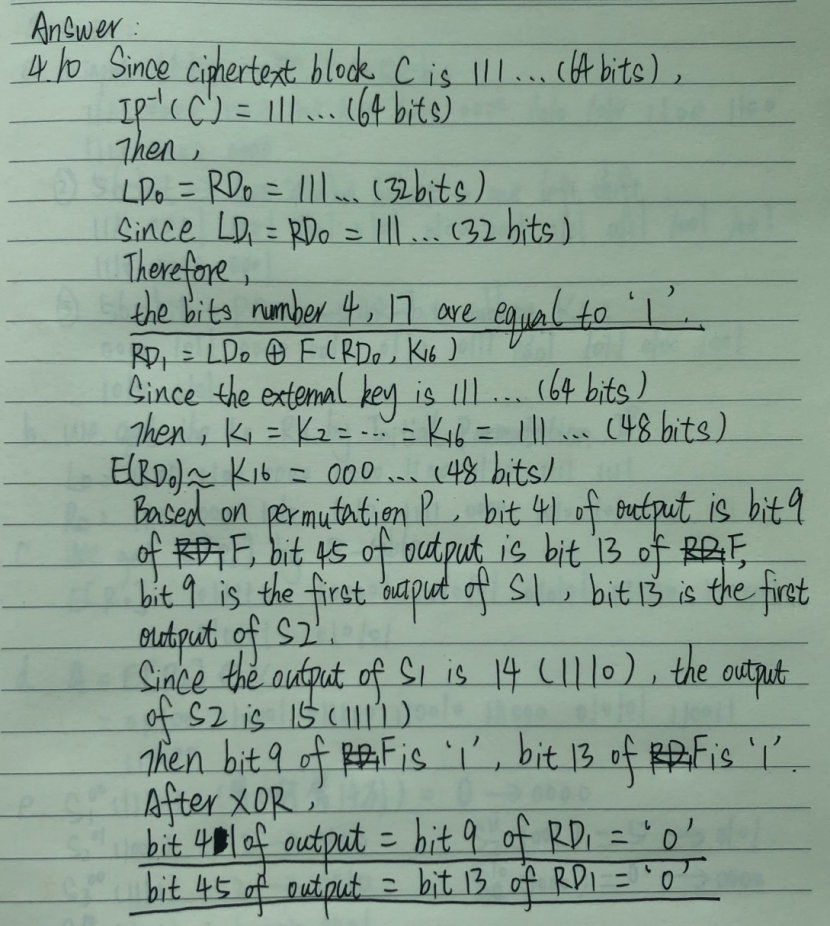 Answer:
4.10 Since ciphertext block C is 111... (64 bits),
IP⁻¹(C) = 111... (64 bits)
Then,
LD₀ = RD₀ = 111... (32 bits)
Since LD₁ = RD₀ = 111... (32 bits)
Therefore,
the bits number 4, 17 are equal to '1'.
RD₁ = LD₀ ⊕ F(RD₀, K₁₆)
Since the external key is 111... (64 bits)
Then, K₁ = K₂ = ... = K₁₆ = 111... (48 bits)
E(RD₀) ≈ K₁₆ = 000... (48 bits)
Based on permutation P, bit 41 of output is bit 9
of F, bit 45 of output is bit 13 of F,
bit 9 is the first output of S1, bit 13 is the first
output of S2.
Since the output of S1 is 14 (1110), the output
of S2 is 15 (1111)
Then bit 9 of F is '1', bit 13 of F is '1'.
After XOR,
bit 41 of output = bit 9 of RD₁ = '0'
bit 45 of output = bit 13 of RD₁ = '0'